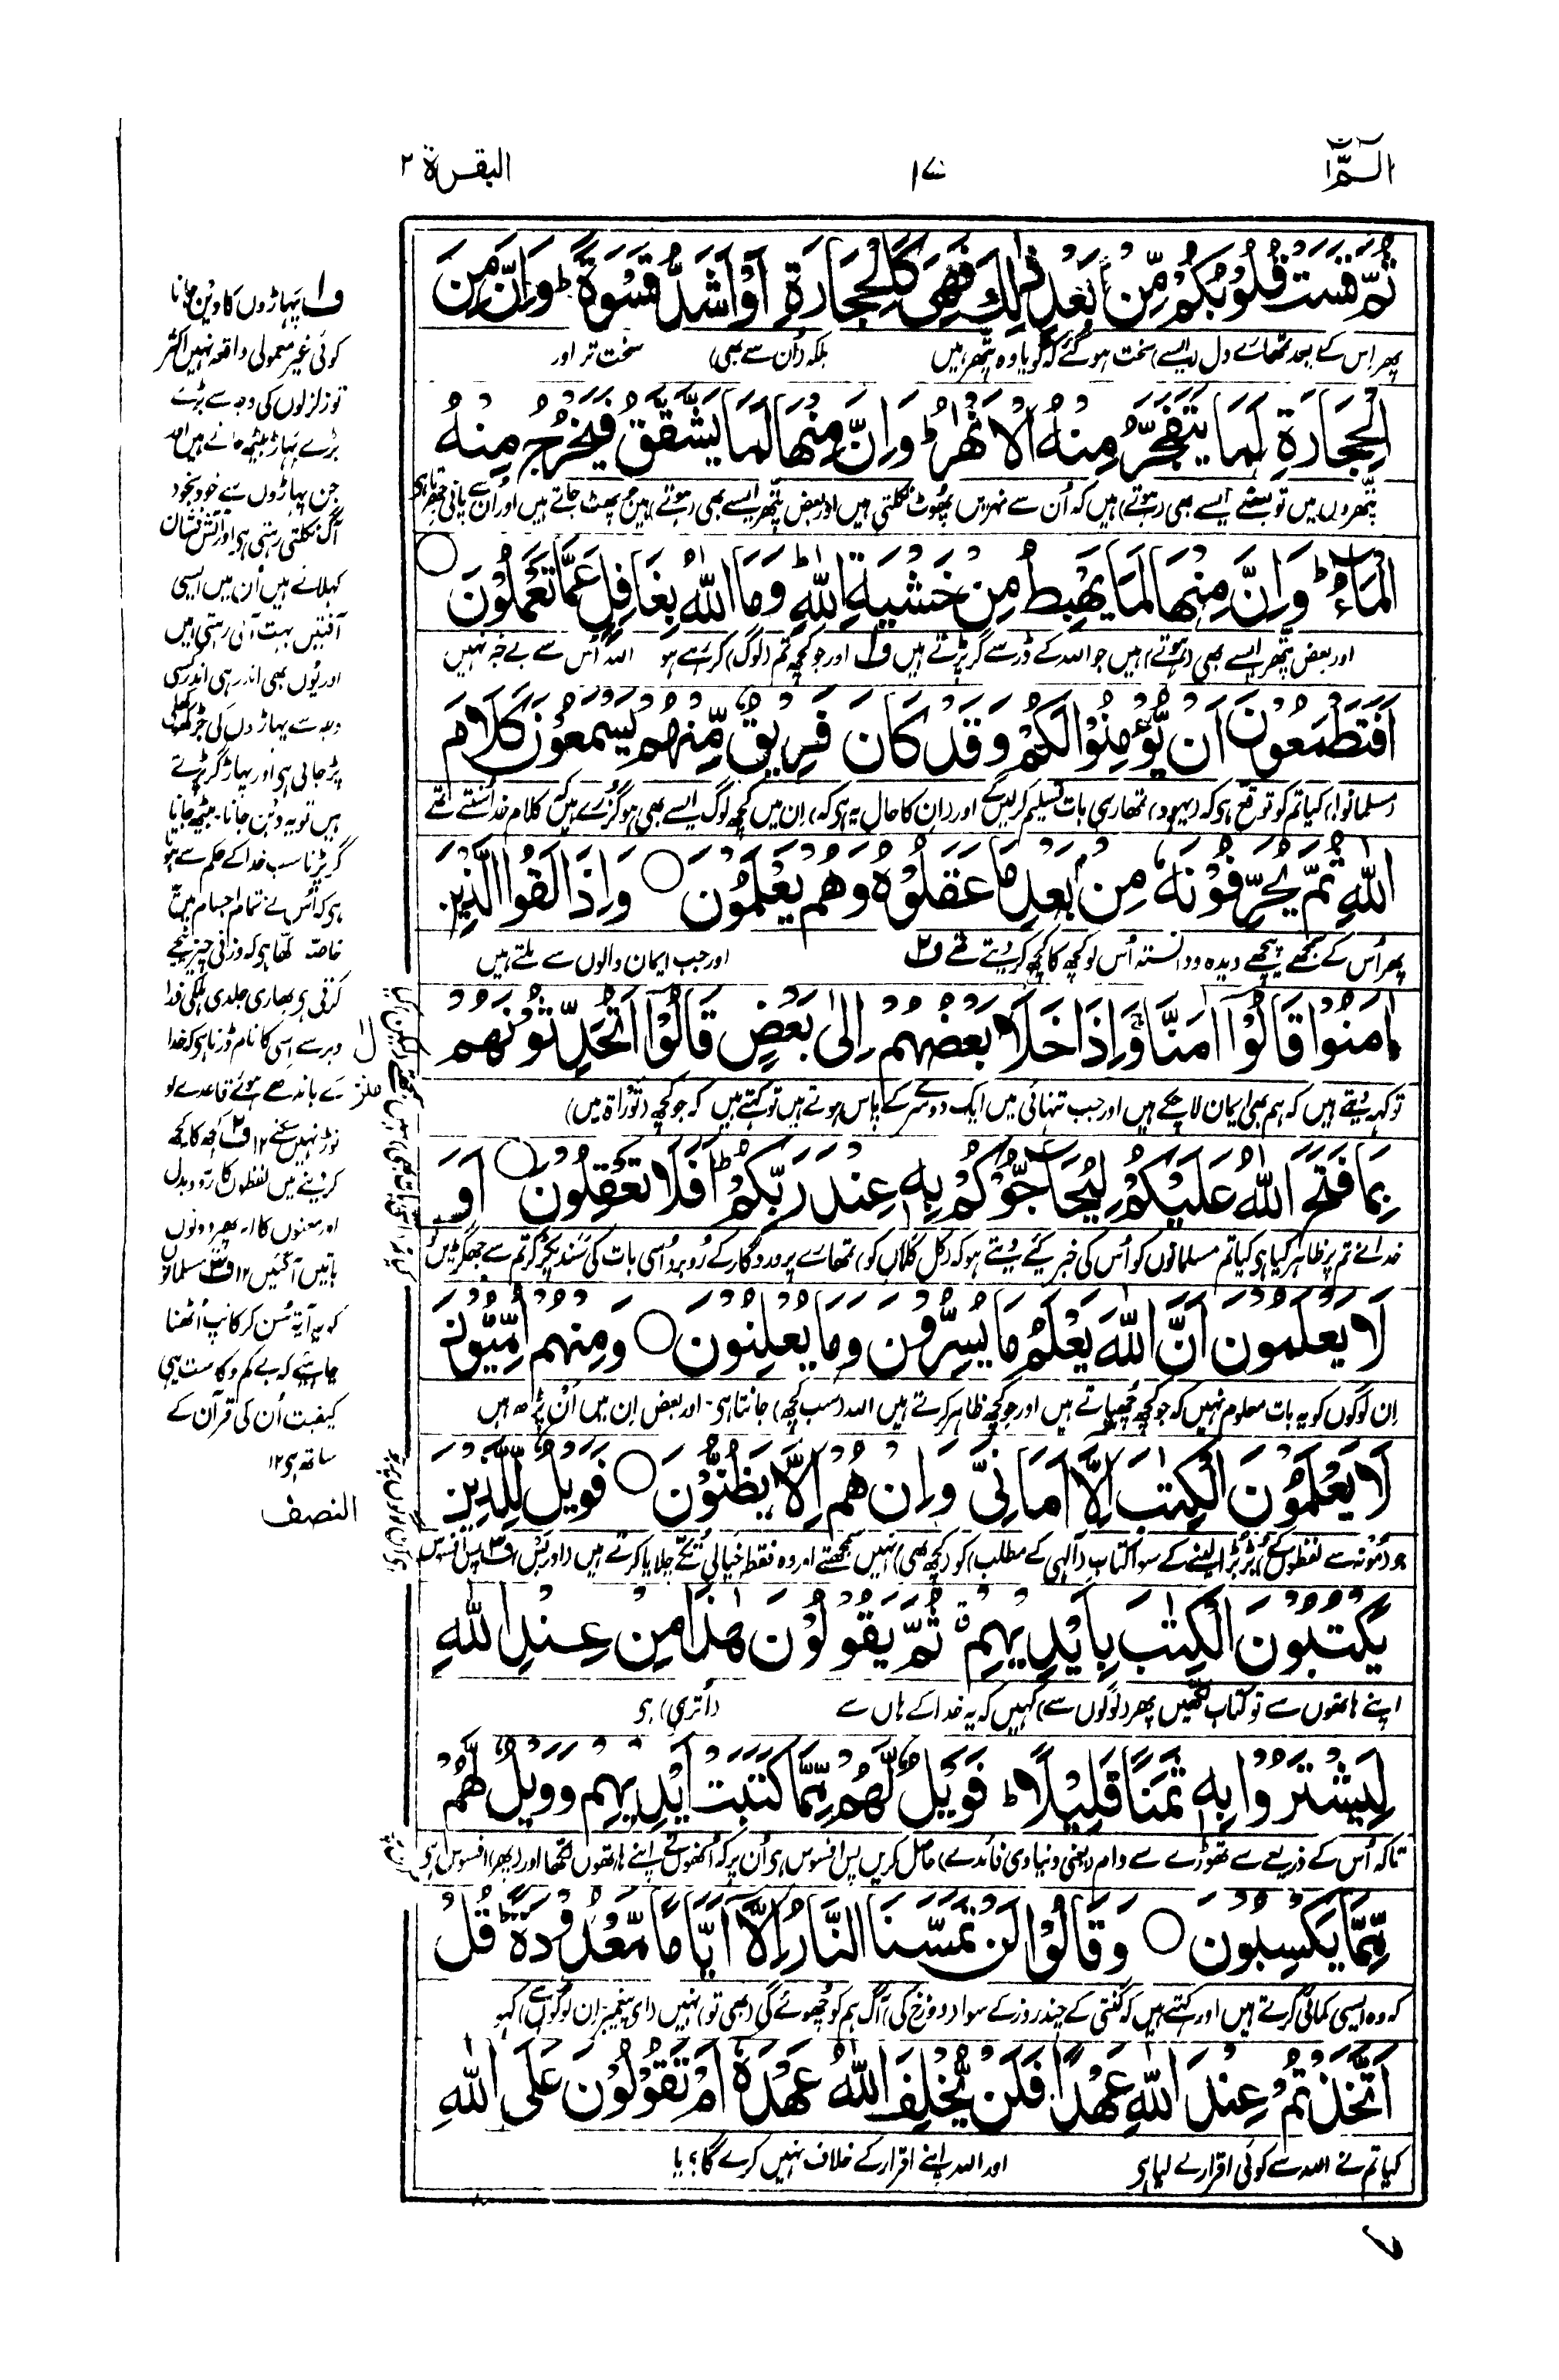 الٓمّٓ ١
١٧
البقرة ٢
ثُمَّ قَسَتْ قُلُوْبُكُمْ مِّنْۢ بَعْدِ ذٰلِكَ فَهِیَ كَالْحِجَارَةِ اَوْ اَشَدُّ قَسْوَةً ؕ وَاِنَّ مِنَ
پھر اس کے بعد تمھارے دل (ایسے) سخت ہو گئے کہ گویا وہ پتھر ہیں بلکہ (اُن سے بھی) سخت تر اور
الْحِجَارَةِ لَمَا یَتَفَجَّرُ مِنْهُ الْاَنْهٰرُ ؕ وَاِنَّ مِنْهَا لَمَا یَشَّقَّقُ فَیَخْرُجُ مِنْهُ
پتھروں میں تو بعضے ایسے بھی (ہوتے) ہیں کہ اُن سے نہریں پھوٹ نکلتی ہیں اور بعض پتھر ایسے بھی (ہوتے) ہیں جو پھٹ جاتے ہیں اور اُن سے پانی جھرتا ہی
الْمَآءُ ؕ وَاِنَّ مِنْهَا لَمَا یَهْبِطُ مِنْ خَشْیَةِ اللّٰهِ ؕ وَمَا اللّٰهُ بِغَافِلٍ عَمَّا تَعْمَلُوْنَ ○
اور بعض پتھر ایسے بھی (ہوتے) ہیں جو اللہ کے ڈر سے گر پڑتے ہیں ف۱ اور جو کچھ تم (لوگ) کر رہے ہو اللہ اُس سے بے خبر نہیں
اَفَتَطْمَعُوْنَ اَنْ یُّؤْمِنُوْا لَكُمْ وَقَدْ كَانَ فَرِیْقٌ مِّنْهُمْ یَسْمَعُوْنَ كَلَامَ
(مسلمانو!) کیا تم کو توقع ہی کہ (یہود) تمھاری بات تسلیم کر لیں گے اور (ان کا حال یہ ہی کہ) اِن میں کچھ لوگ ایسے بھی ہو گزرے ہیں کہ کلام خدا سُنتے تھے
اللّٰهِ ثُمَّ یُحَرِّفُوْنَهٗ مِنْۢ بَعْدِ مَا عَقَلُوْهُ وَهُمْ یَعْلَمُوْنَ ○ وَاِذَا لَقُوا الَّذِیْنَ
پھر اُس کے سمجھے پیچھے دیدہ و دانستہ اُس کو کچھ کا کچھ کر دیتے تھے ف۲ اور جب ایمان والوں سے ملتے ہیں
اٰمَنُوْا قَالُوْٓا اٰمَنَّا ۚۖ وَاِذَا خَلَا بَعْضُهُمْ اِلٰی بَعْضٍ قَالُوْٓا اَتُحَدِّثُوْنَهُمْ
تو کہہ دیتے ہیں کہ ہم بھی ایمان لا چکے ہیں اور جب تنہائی میں ایک دوسرے کے پاس ہوتے ہیں تو کہتے ہیں کہ جو کچھ (توراۃ میں)
بِمَا فَتَحَ اللّٰهُ عَلَیْكُمْ لِیُحَآجُّوْكُمْ بِهٖ عِنْدَ رَبِّكُمْ ؕ اَفَلَا تَعْقِلُوْنَ ○ اَوَ
خدا نے تم پر ظاہر کیا ہی کیا تم مسلمانوں کو اُس کی خبر کیے دیتے ہو کہ (کل کلاں کو) تمھارے پروردگار کے رُوبرو اُسی بات کی سَند پکڑ کر تم سے جھگڑیں
لَا یَعْلَمُوْنَ اَنَّ اللّٰهَ یَعْلَمُ مَا یُسِرُّوْنَ وَمَا یُعْلِنُوْنَ ○ وَمِنْهُمْ اُمِّیُّوْنَ
اِن لوگوں کو یہ بات معلوم نہیں کہ جو کچھ چُھپاتے ہیں اور جو کچھ ظاہر کرتے ہیں اللہ (سب کچھ) جانتا ہی۔ اور بعض ان میں اَن پڑھ ہیں
لَا یَعْلَمُوْنَ الْكِتٰبَ اِلَّآ اَمَانِیَّ وَاِنْ هُمْ اِلَّا یَظُنُّوْنَ ○ فَوَیْلٌ لِّلَّذِیْنَ
جو (مُونہ سے لفظوں کے) بُڑ بُڑا لینے کے سوا کتابِ (الٰہی کے مطلب) کو (کچھ بھی) نہیں سمجھتے اور وہ فقط خیالی تُکّے چلایا کرتے ہیں (اور بس) ف۳ پس افسوس
یَكْتُبُوْنَ الْكِتٰبَ بِاَیْدِیْهِمْ ۗ ثُمَّ یَقُوْلُوْنَ هٰذَا مِنْ عِنْدِ اللّٰهِ
اپنے ہاتھوں سے تو کتاب لکھیں پھر (لوگوں سے) کہیں کہ یہ خدا کے ہاں سے (اُتری) ہی
لِیَشْتَرُوْا بِهٖ ثَمَنًا قَلِیْلًا ؕ فَوَیْلٌ لَّهُمْ مِّمَّا كَتَبَتْ اَیْدِیْهِمْ وَوَیْلٌ لَّهُمْ
تاکہ اُس کے ذریعے سے تھوڑے سے دام (یعنی دنیاوی فائدے) حاصل کریں پس افسوس ہی اُن پر کہ اُنھوں نے اپنے ہاتھوں لکھا اور (پھر) افسوس ہی
مِّمَّا یَكْسِبُوْنَ ○ وَقَالُوْا لَنْ تَمَسَّنَا النَّارُ اِلَّآ اَیَّامًا مَّعْدُوْدَةً ؕ قُلْ
کہ وہ ایسی کمائی کرتے ہیں اور کہتے ہیں کہ گنتی کے چند روز کے سوا (دوزخ کی) آگ ہم کو چُھوئے گی (بھی تو) نہیں (ای پیغمبر! اِن لوگوں سے) کہو
اَتَّخَذْتُمْ عِنْدَ اللّٰهِ عَهْدًا فَلَنْ یُّخْلِفَ اللّٰهُ عَهْدَهٗٓ اَمْ تَقُوْلُوْنَ عَلَی اللّٰهِ
کیا تم نے اللہ سے کوئی اقرار لے لیا ہی اور اللہ اپنے اقرار کے خلاف نہیں کرے گا؟ یا
ف۱ پہاڑوں کا دہن جانا
کوئی غیر معمولی واقعہ نہیں اکثر
تو زلزلوں کی وجہ سے بڑے
بڑے پہاڑ بیٹھ جاتے ہیں اور
جن پہاڑوں سے خود بخود
آگ نکلتی رہتی ہی اور آتش فشان
کہلاتے ہیں اُن میں ایسی
آفتیں بہت آتی رہتی ہیں
اور یُوں بھی اندر ہی اندر کسی
وجہ سے پہاڑوں کی جڑ کھوکھلی
پڑ جاتی ہی اور پہاڑ گر پڑتے
ہیں تو یہ دہن جانا۔ بیٹھ جانا
گر پڑنا سب خدا کے حکم سے ہوتا
ہی کہ اُس نے تمام اجسام میں
خاصہ رکھا ہی کہ وزنی چیز نیچے
گرتی ہی بھاری جلدی ہلکی ذرا
دیر سے اسی کا نام ڈرنا ہی کہ خدا
کے باندھے ہوئے قاعدے کو
توڑ نہیں سکتے ۱۲ ف۲ کچھ کا کچھ
کر دینے میں لفظوں کا ردّ و بدل
اور معنوں کا ہیر پھیر دونوں
باتیں آ گئیں ۱۲ ف۳ مسلمانوں
کو یہ آیۃ سُن کر کانپ اُٹھنا
چاہیے کہ بے کم و کاست یہی
کیفیت اُن کی قرآن کے
ساتھ ہی ۱۲
النصف
منزل